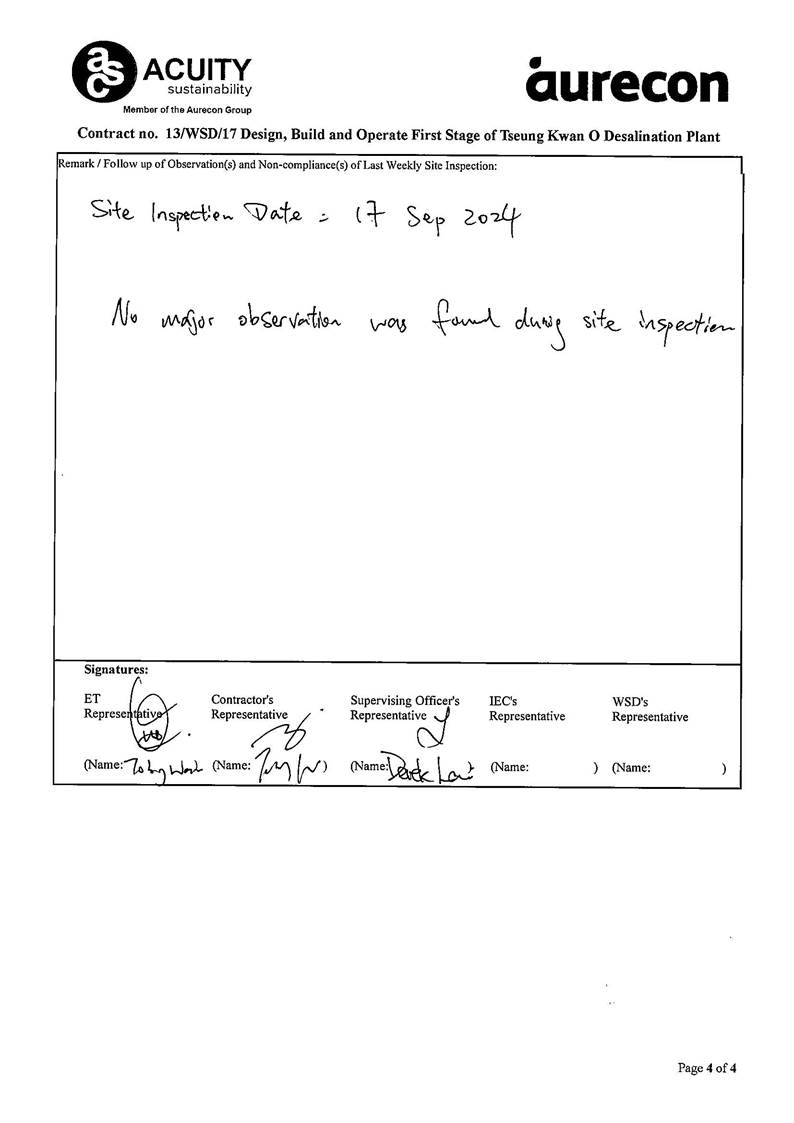 asc ACUITY
sustainability
Member of the Aurecon Group
aurecon
Contract no. 13/WSD/17 Design, Build and Operate First Stage of Tseung Kwan O Desalination Plant
Remark / Follow up of Observation(s) and Non-compliance(s) of Last Weekly Site Inspection:
Site Inspection Date : 17 Sep 2024
No major observation was found during site inspection
Signatures:
ET Representative
Contractor's Representative
Supervising Officer's Representative
IEC's Representative
WSD's Representative
(Name:
(Name: )
(Name: Derek
(Name: )
(Name: )
Page 4 of 4